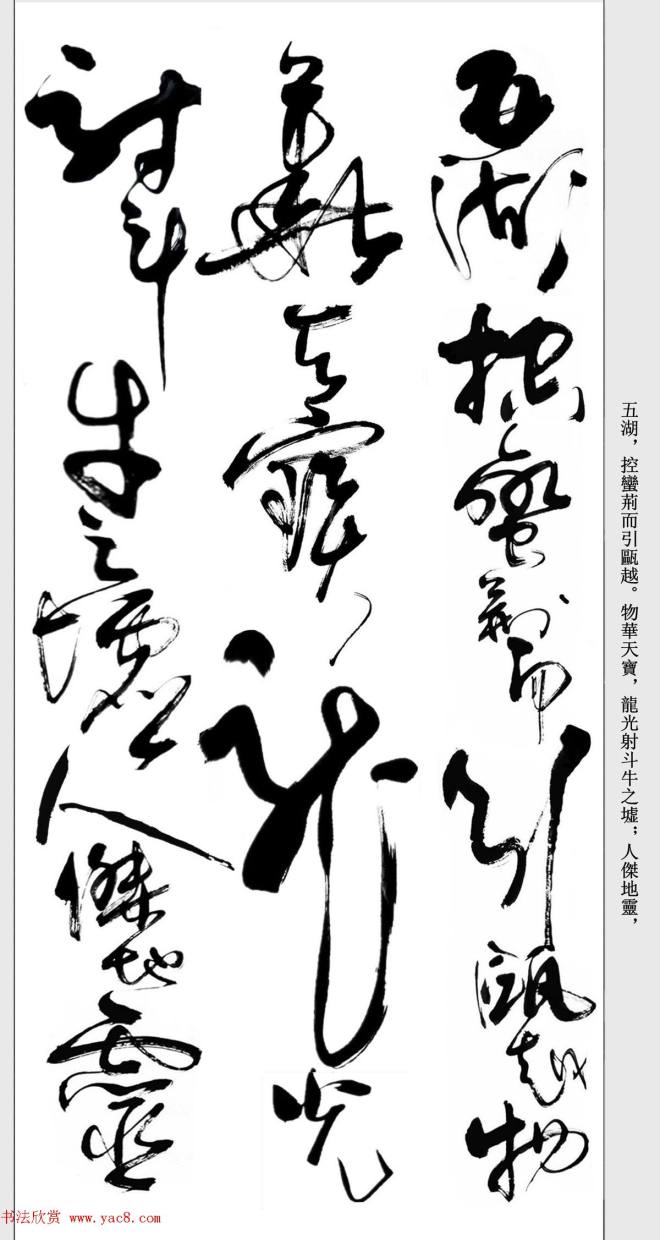 五湖控蠻荊而引甌越物
華天寶龍光
射斗牛之墟人傑地靈
五湖，控蠻荊而引甌越。物華天寶，龍光射斗牛之墟；人傑地靈，
书法欣赏 www.yac8.com